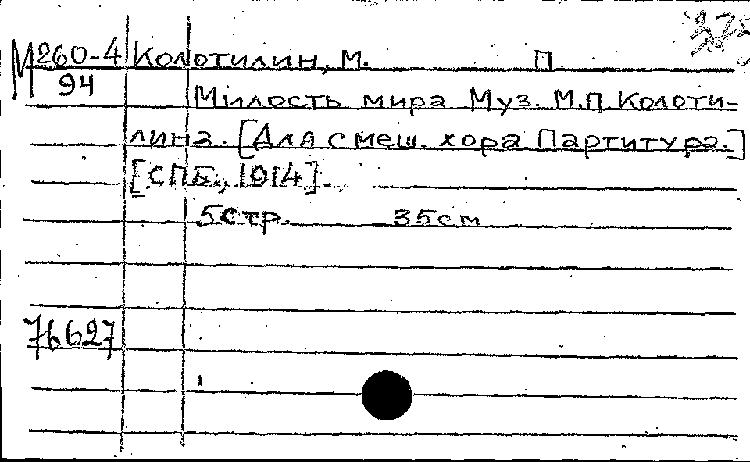 М 260-4 Колотилин, М. П
94
Милость мира Муз. М.П. Колоти-
лина. [Для смеш. хора Партитура.]
[СПБ., 1914].
5 стр. 35 см
76627